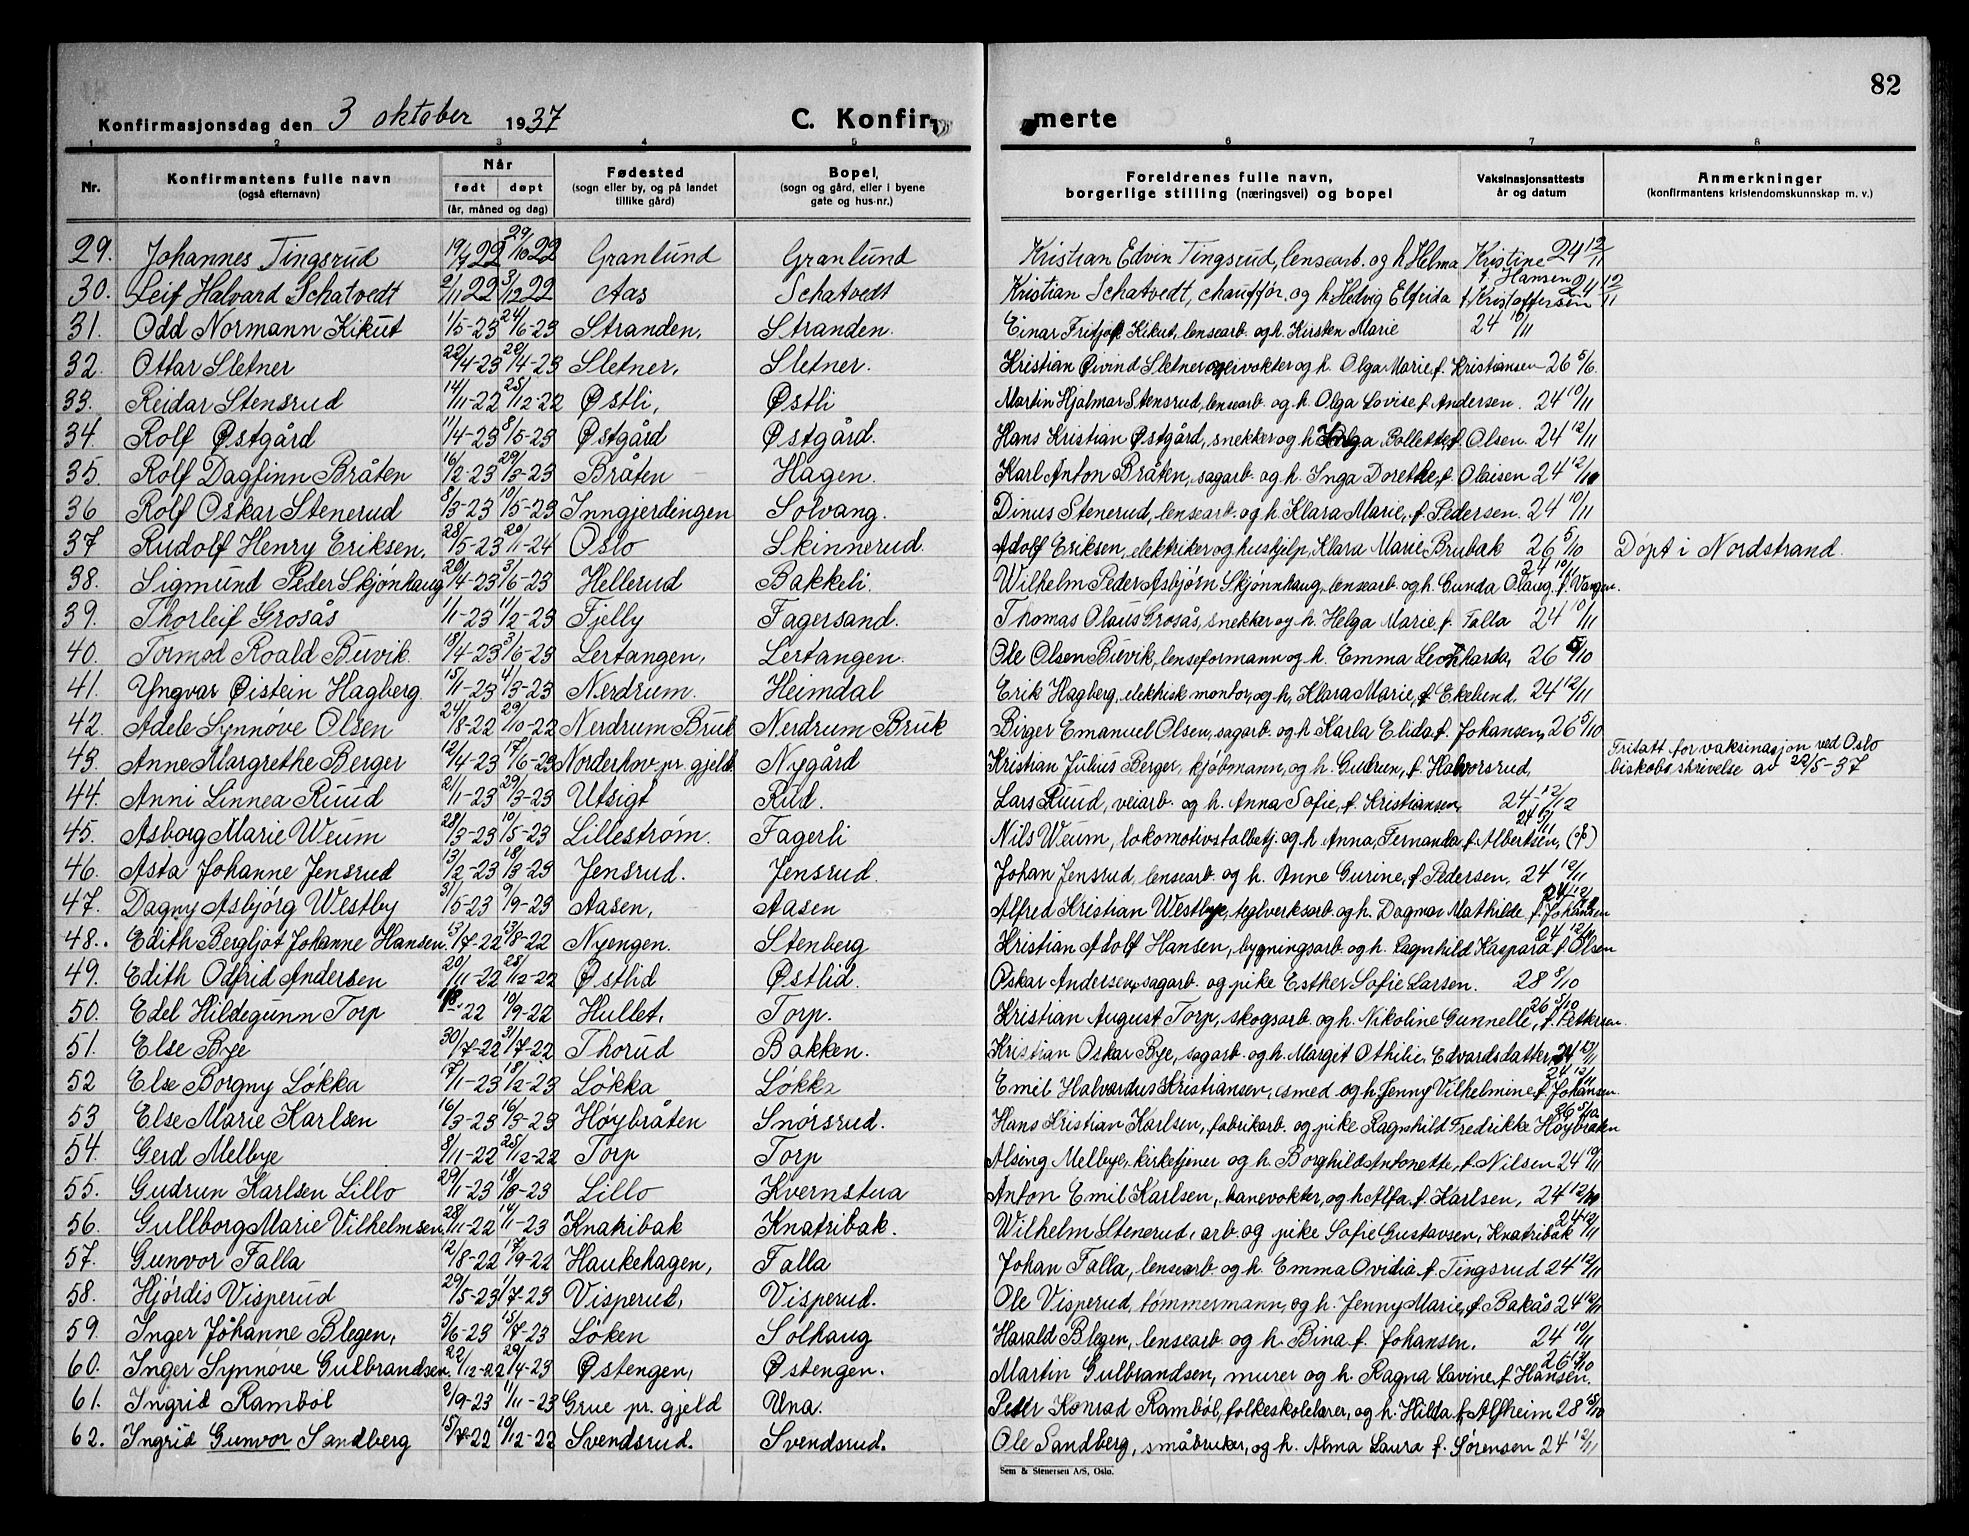 82
Konfirmasjonsdag den 3 oktober 1937 C. Konfir merte
1 2 3 4 5 6 7 8
Nr. Konfirmantens fulle navn (også efternavn) Når født døpt (år, måned og dag) Fødested (sogn eller by, og på landet tillike gård) Bopel, (sogn og gård, eller i byene gate og hus-nr.) Foreldrenes fulle navn, borgerlige stilling (næringsvei) og bopel Vaksinasjonsattests år og datum Anmerkninger (konfirmantens kristendomskunnskap m. v.)
29. Johannes Tingsrud 19/9 22 29/10 22 Granlund Granlund Kristian Edvin Tingsrud, lensearb. og h Helma Kristine f. Hansen 24 12/11
30. Leif Halvard Schatvedt 2/11 22 3/12 22 Aas Schatvedt Kristian Schatvedt, chauffør. og h. Hedvig Elfrida f. Kristoffersen 24 12/11
31. Odd Normann Kikut 1/5-23 24/6-23 Stranden, Stranden. Einar Fritjof Kikut, lensearb. og h. Kirsten Marie 24 10/11
32. Ottar Sletner 22/4-23 22/4-23 Sletner, Sletner. Kristian Øivind Sletner veivokter og h. Olga Marie, f. Kristiansen 26 5/6
33. Reidar Stensrud 14/11-22 25/12-22 Østli, Østli Martin Hjalmar Stensrud, lensearb. og h. Olga Lovise, f. Andersen. 24 10/11
34. Rolf Østgård 11/4-23 8/5-23 Østgård Østgård. Hans Kristian Østgård, snekker og h. Helga Pollette, f. Olsen. 24 12/11
35. Rolf Dagfinn Bråten 16/2-23 29/3-23 Bråten Hagen. Karl Anton Bråten, sagarb. og h. Inga Dorethe, f. Olaisen 24 12/10
36 Rolf Oskar Stenerud 8/3-23 10/5-23 Inngjerdingen Solvang. Dinus Stenerud, lensearb. og h. Klara Marie, f. Pedersen. 24 10/11
37 Rudolf Henry Eriksen, 28/5-23 20/1-24 Oslo Skinnerud. Adolf Eriksen, elektriker og hushjelp, Klara Marie Brubak 26 5/10 Døpt i Nordstrand.
38. Sigmund Peder Skjønhaug 20/4-23 3/6-23 Hellerud Bakkeli. Wilhelm Peder Asbjørn Skjønnhaug, lensearb. og h. Gunda Olaug, f. Vangen. 24 10/11
39. Thorleif Grosås 1/1-23 11/2-23 Fjelly Fagersand. Thomas Olaus Grosås, snekker og h. Helga Marie, f. Falla 24 10/11
40. Tormod Roald Buvik. 18/4-23 3/6-23 Lertangen, Lertangen. Ole Olsen Buvik, lenseformann og h. Emma Leonharda, 26 5/10
41. Yngvar Øistein Hagberg. 15/1-23 4/3-23 Nerdrum. Heimdal Erik Hagberg, elektrisk montør, og h, Klara Marie, f. Ekelund. 24 12/11
42. Adele Synnøve Olsen 24/8-22 29/10-22 Nerdrum Bruk Nerdrum Bruk Birger Emanuel Olsen, sagarb. og h. Karla Elida f. Johansen, 26 5/10
43. Anne Margrethe Berger 12/4-23 17/6-23 Norderhov pr. gjeld Nygård Kristian Julius Berger, kjøbmann, og h. Gudrun, f. Halvorsrud, Fritatt for vaksinasjon ved Oslo biskobs skrivelse av 22/5-37
44. Anni Linnea Ruud 21/1-23 29/3-23 Utsigt Rud. Lars Ruud, veiarb. og h. Anna Sofie, f. Kristiansen, 24-12/12
45. Asborg Marie Weum 28/3-23 10/5-23 Lillestrøm. Fagerli Nils Weum, lokomotivstalbetj. og h. Anna, Fernanda f. Albertsen, 24 5/11
46. Asta Johanne Jensrud 13/2-23 18/3-23 Jensrud. Jensrud. Johan Jensrud, lensearb. og h. Anne Gurine, f. Pedersen. 24 12/11
47. Dagny Asbjørg Westby 31/5-23 9/9-23 Aasen, Aasen Alfred Kristian Westbye, teglverksarb. og h. Dagmar Mathilde f. Johansen
48. Edith Bergljot Johanne Hansen. 13/7-22 13/8-22 Nyengen. Stenberg Kristian Adolf Hansen, bygningsarb. og h. Ragnhild Kaspara f. Olsen
49. Edith Odfrid Andersen 20/11-22 25/12-22 Østlid Østlid. Oskar Andersen, sagarb. og pike Esther Sofie Larsen. 28 8/10
50. Edel Hildegunn Torp -22 10/9-22 Hullet, Torp. Kristian August Torp, skogsarb. og h. Nikoline Gunnelle, f. Pettersen. 26 5/10
51. Else Bye 30/7-22 31/7-22 Thorud Bakken. Kristian Oskar Bye, sagarb. og h. Margit Othilie, Edvardsdatter, 24 12/11
52 Else Borgny Løkka 7/1-23 18/2-23 Løkka Løkka Emil Halvardus Kristiansen, smed og h. Jenny Vilhelmine f. Johansen. 24 13/11
53 Else Marie Karlsen 16/3-23 16/5-23 Høybråten Snørsrud. Hans Kristian Karlsen, fabrikarb. og pike Ragnhild Fredrikke Høybråten 26 5/10
54. Gerd Melbye 8/11-22 25/12-22 Torp Torp Alsing Melbye, kirketjener og h. Borghild Antonette, f. Nilsen 24 10/11
55. Gudrun Karlsen Lillo 29/1-23 18/3-23 Lillo Kvernstua Anton Emil Karlsen, banevokter, og h. Alfa, f. Karlsen, 24 12/10
56. Gullborg Marie Vilhelmsen. 28/11-22 14/1-23 Knatribak Knatribak. Wilhelm Stenerud, arb. og pike Sofie Gustavsen, Knatribak 24 12/11
57. Gunvor Falla 12/8-22 17/9-22 Haukehagen, Falla Johan Falla, lensearb. og h. Emma Ovidia f. Tingsrud 24 12/11
58. Hjørdis Visperud 29/5-23 1/7-23 Visperud, Visperud. Ole Visperud, tømmermann, og h. Jenny Marie, f. Bakås 24 12/11
59. Inger Johanne Blegen, 5/6-23 15/7-23 Løken Solhaug Harald Blegen, lensearb. og h. Bina f. Johansen. 24 10/11
60. Inger Synnøve Gulbrandsen. 22/12-22 29/4-23 Østengen, Østengen. Martin Gulbrandsen, murer og h. Ragna Lavine f. Hansen.
61. Ingrid Rambøl 2/9-23 11/11-23 Grue pr. gjeld Una. Peder Konrad Rambøl, folkeskolelærer, og h. Hilda f. Alfheim 28 15/10
62. Ingrid Gunvor Sandberg 15/7-22 10/12-22 Svendsrud. Svendsrud. Ole Sandberg, småbruker, og h. Alma Laura f. Sørensen 24 12/11
Sem & Stenersen A/S, Oslo.